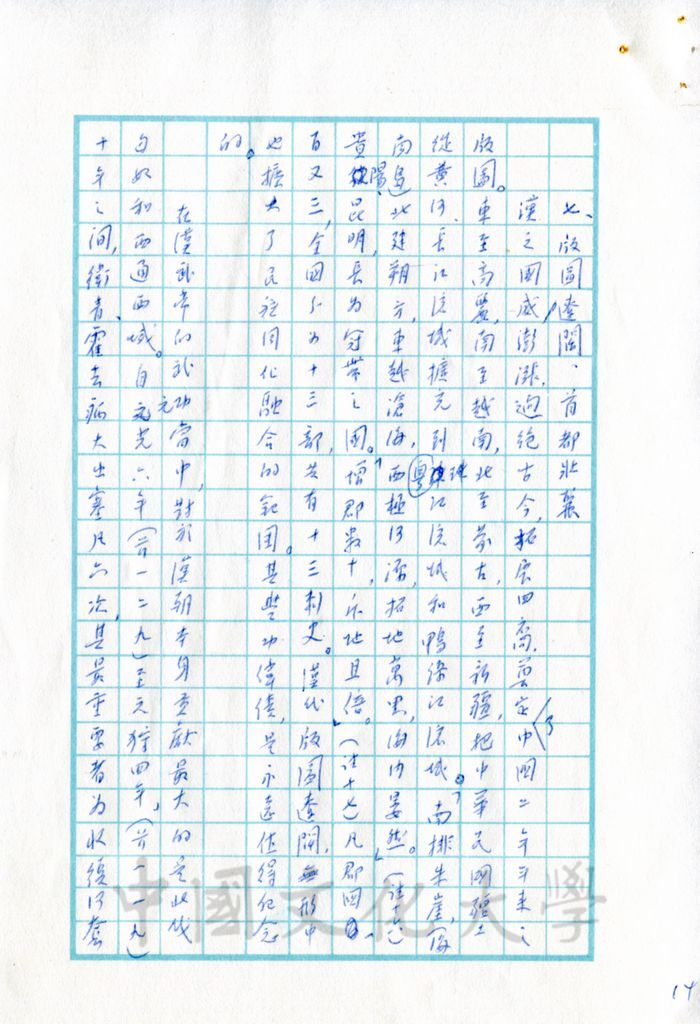 七、版圖遼闊、首都壯麗
漢之國威澎漲,迥絕古今,拓展四裔,奠定了中國二千年來之
版圖。東至高麗,南至越南,北至蒙古,西至新疆,把中華民國疆土
從黃河、長江流域擴充到粵江流域和鴨綠江流域。「南排朱崖,
南邊北建朔方,東越滄海,西極河源,拓地萬里,海內晏然。」(註十六)
貴陽、昆明,長為冠帶之國。「增郡數十,斥地且倍。」(註十七)凡郡國
百又三,全國分為十三部,共有十三刺史。漢代版圖遼闊,無形中
也擴大了民族同化融合的範圍。其豐功偉績,是永遠值得紀念
的。
在漢武帝的武功當中,對於漢朝本身貢獻最大的是北伐
匈奴和西通西域。自元光六年(前一二九)至元狩四年,(前一一九)
十年之間,衛青、霍去病大出塞凡六次,其最重要者為收復河套
14
中國文化大學